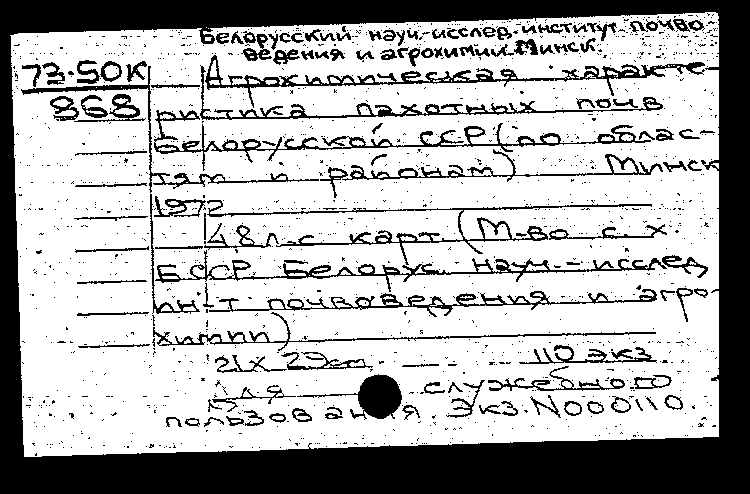 Белорусский науч.-исслед. институт почво-
ведения и агрохимии. Минск.
73-50К
868
Агрохимическая характе-
ристика пахотных почв
Белорусской ССР (по облас-
тям и районам). Минск
1972
48 л. с карт. (М-во с. х.
БССР. Белорус. науч.-исслед.
ин-т почвоведения и агро-
химии).
21 х 29 cm. 110 экз.
Для служебного
пользования. Экз. N000110.